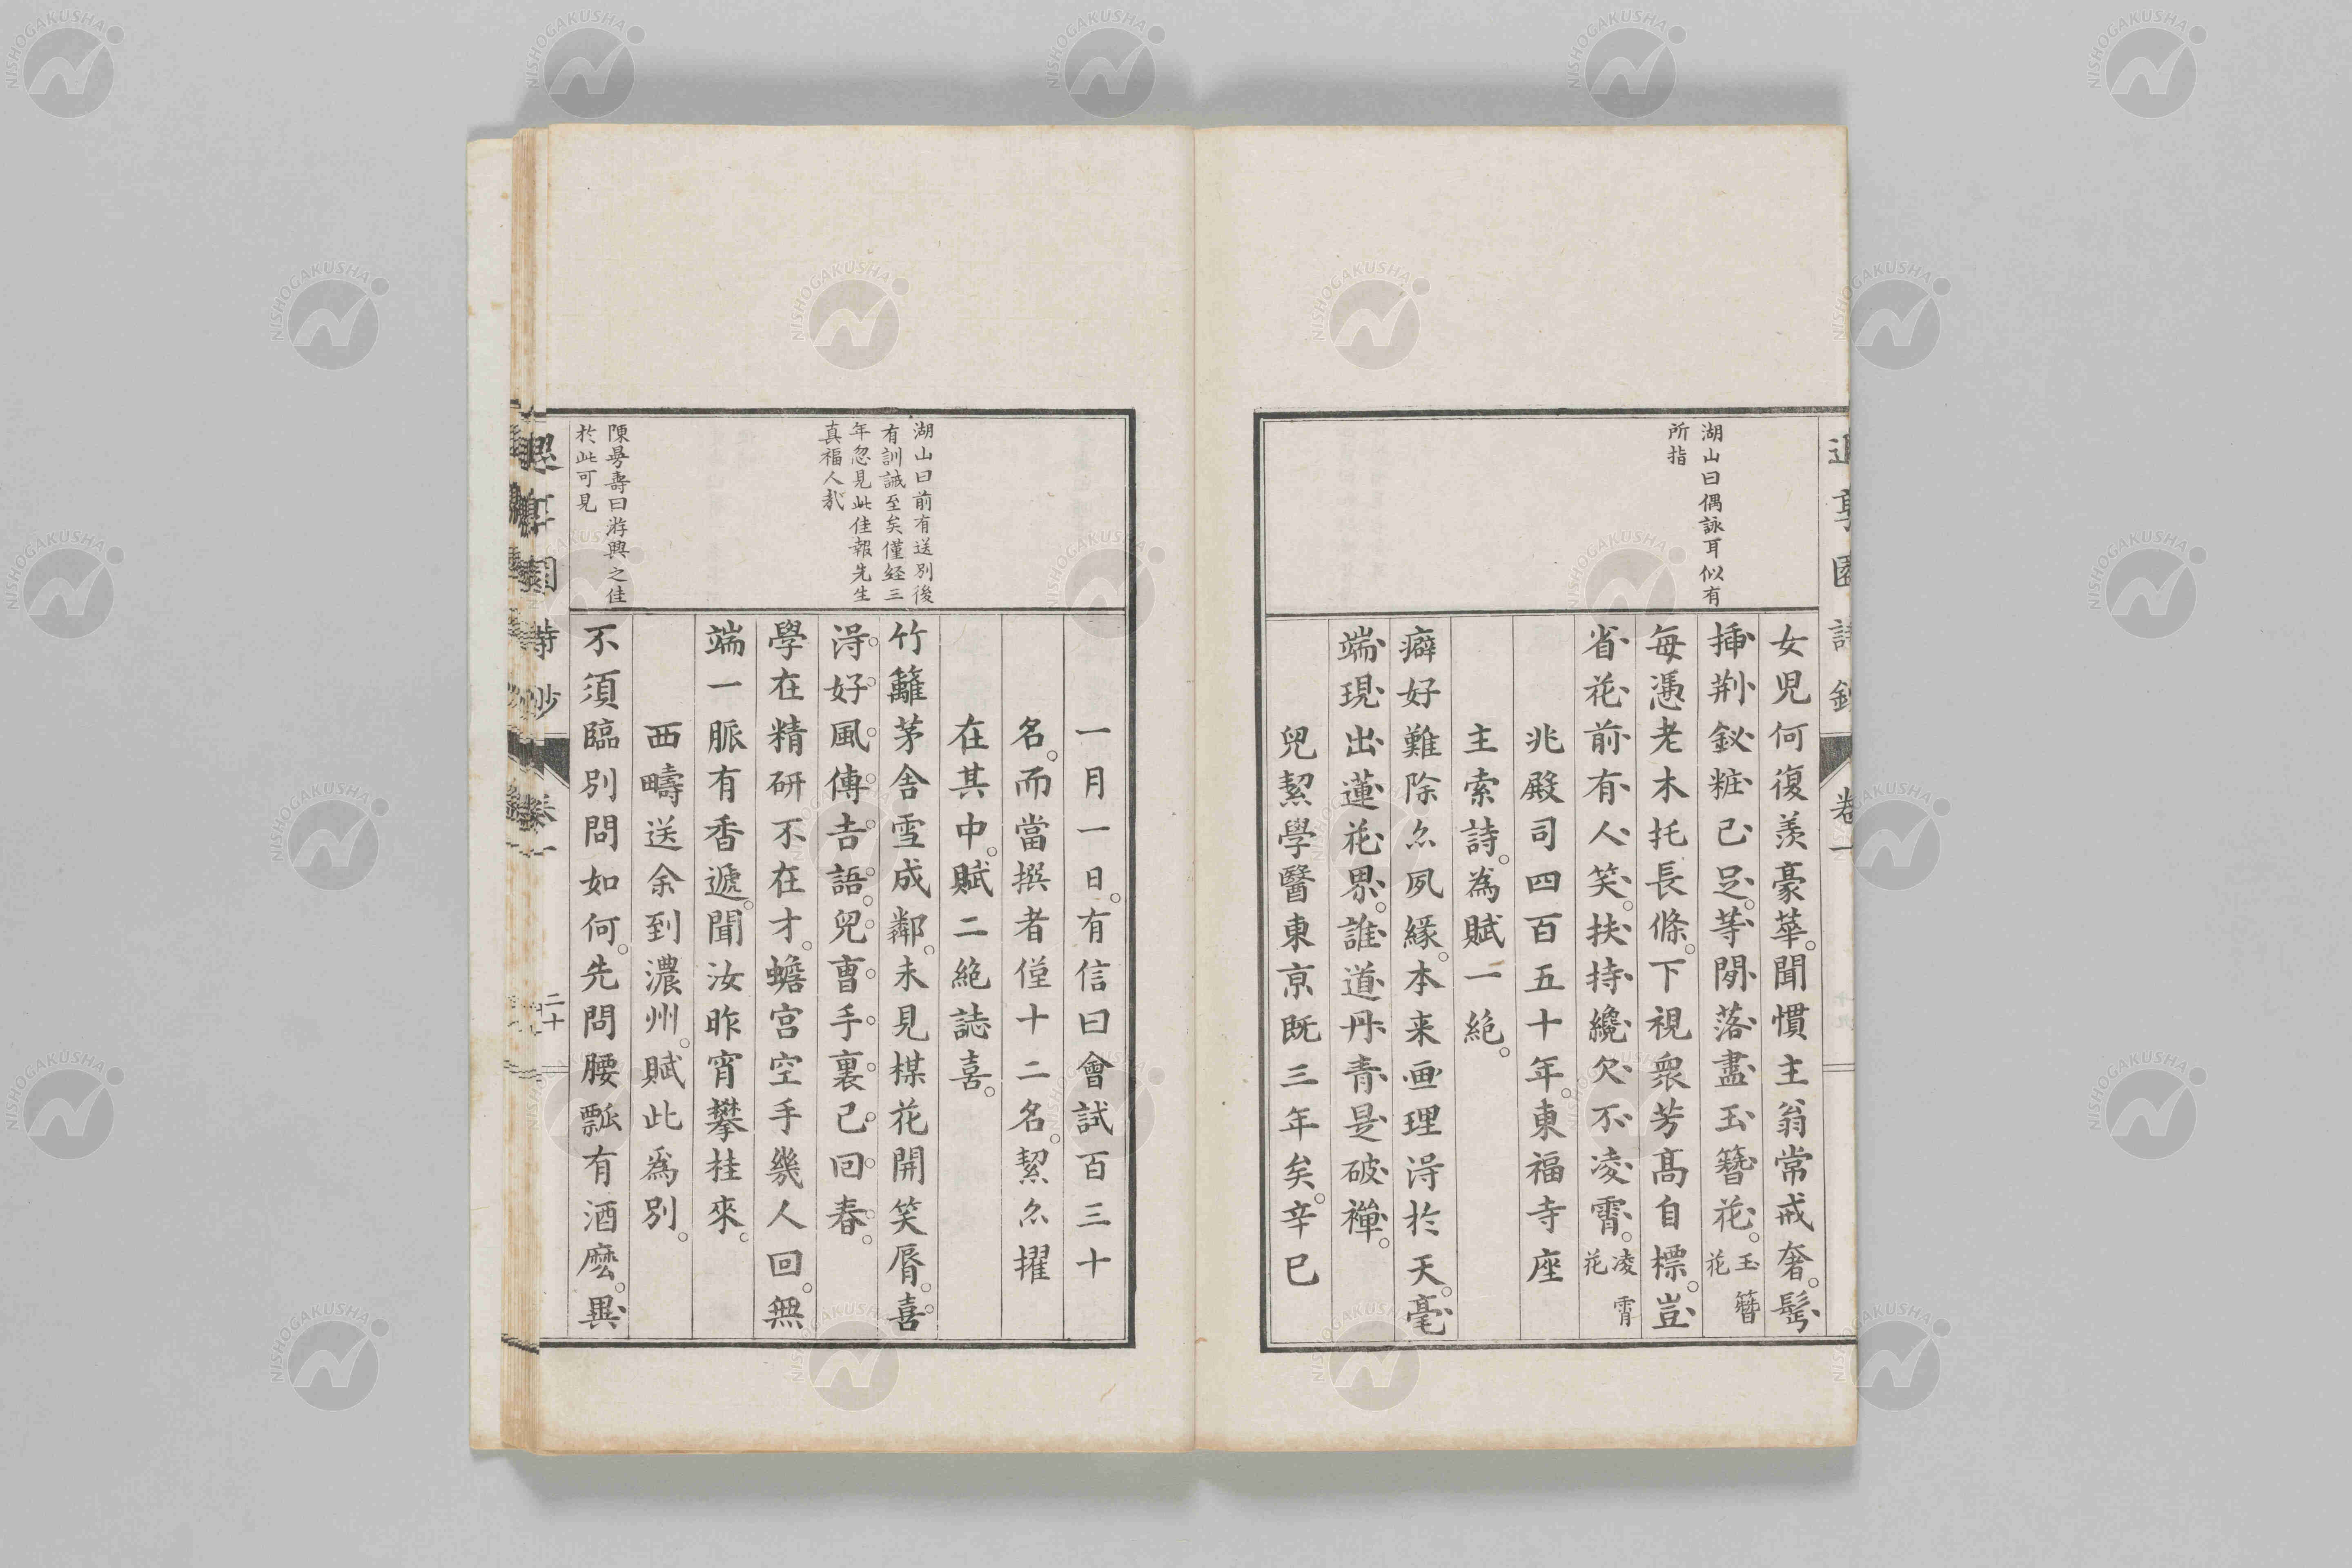 湖山曰偶詠耳似有
所指
女児何復羨豪華。聞慣主翁常戒奢。髩
挿荆釵粧已足。等閒落盡玉簪花。玉簪花
每憑老木托長條。下視衆芳髙自標。豈
省花前有人笑。扶持纔欠不凌霄。凌霄花
兆殿司四百五十年。東福寺座
主索詩。為賦一絶。
癖好難除尒夙縁。本来画理淂於天。毫
端現出蓮花界。誰道丹青是破禅。
兒絜學醫東京既三年矣。辛巳
卷一
湖山曰前有送別後
有訓誡至矣僅経三
年忽見此佳報先生
真福人哉
陳曼壽曰游興之佳
於此可見
一月一日。有信曰會試百三十
名。而當撰者僅十二名。絜尒擢
在其中。賦二絶誌喜。
竹籬茅舎雪成鄰。未見楳花開笑脣。喜
淂好風傳吉語。兒曺手裏已回春。
學在精研不在才。蟾宮空手幾人回。無
端一脈有香遞。聞汝昨宵攀桂來。
西疇送余到濃州。賦此爲別。
不須臨別問如何。先問腰瓢有酒麽。異
二十
NISHOGAKUSHA